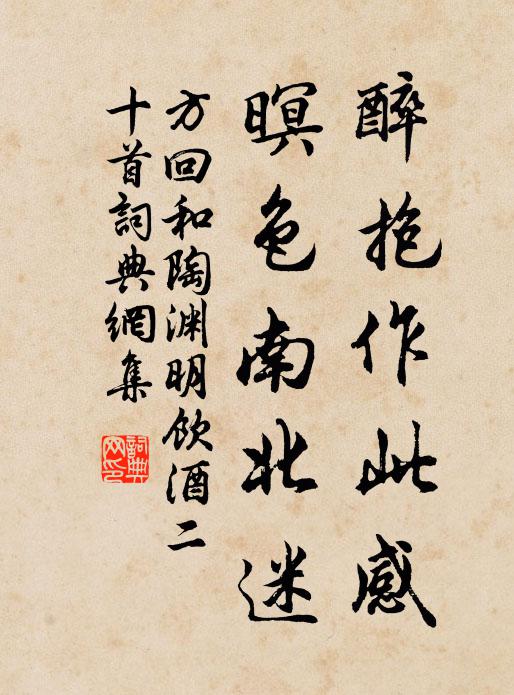 醉抱作此感
暝色南北迷
方回和陶渊明饮酒二
十首詞典網集
詞典网印